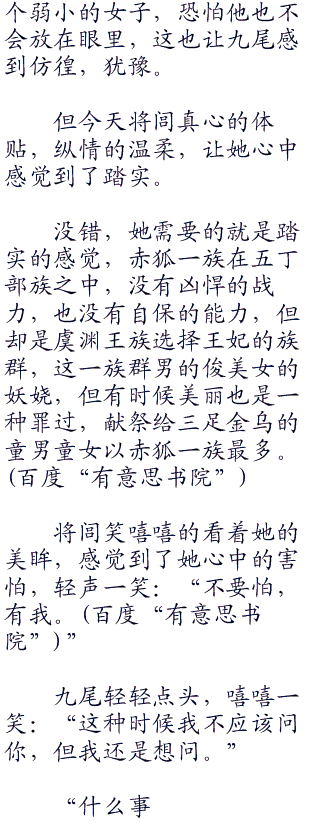 个弱小的女子，恐怕他也不
会放在眼里，这也让九尾感
到仿徨，犹豫。
但今天将闾真心的体
贴，纵情的温柔，让她心中
感觉到了踏实。
没错，她需要的就是踏
实的感觉，赤狐一族在五丁
部族之中，没有凶悍的战
力，也没有自保的能力，但
却是虞渊王族选择王妃的族
群，这一族群男的俊美女的
妖娆，但有时候美丽也是一
种罪过，献祭给三足金乌的
童男童女以赤狐一族最多。
(百度“有意思书院”)
将闾笑嘻嘻的看着她的
美眸，感觉到了她心中的害
怕，轻声一笑：“不要怕，
有我。(百度“有意思书
院”)”
九尾轻轻点头，嘻嘻一
笑：“这种时候我不应该问
你，但我还是想问。”
“什么事